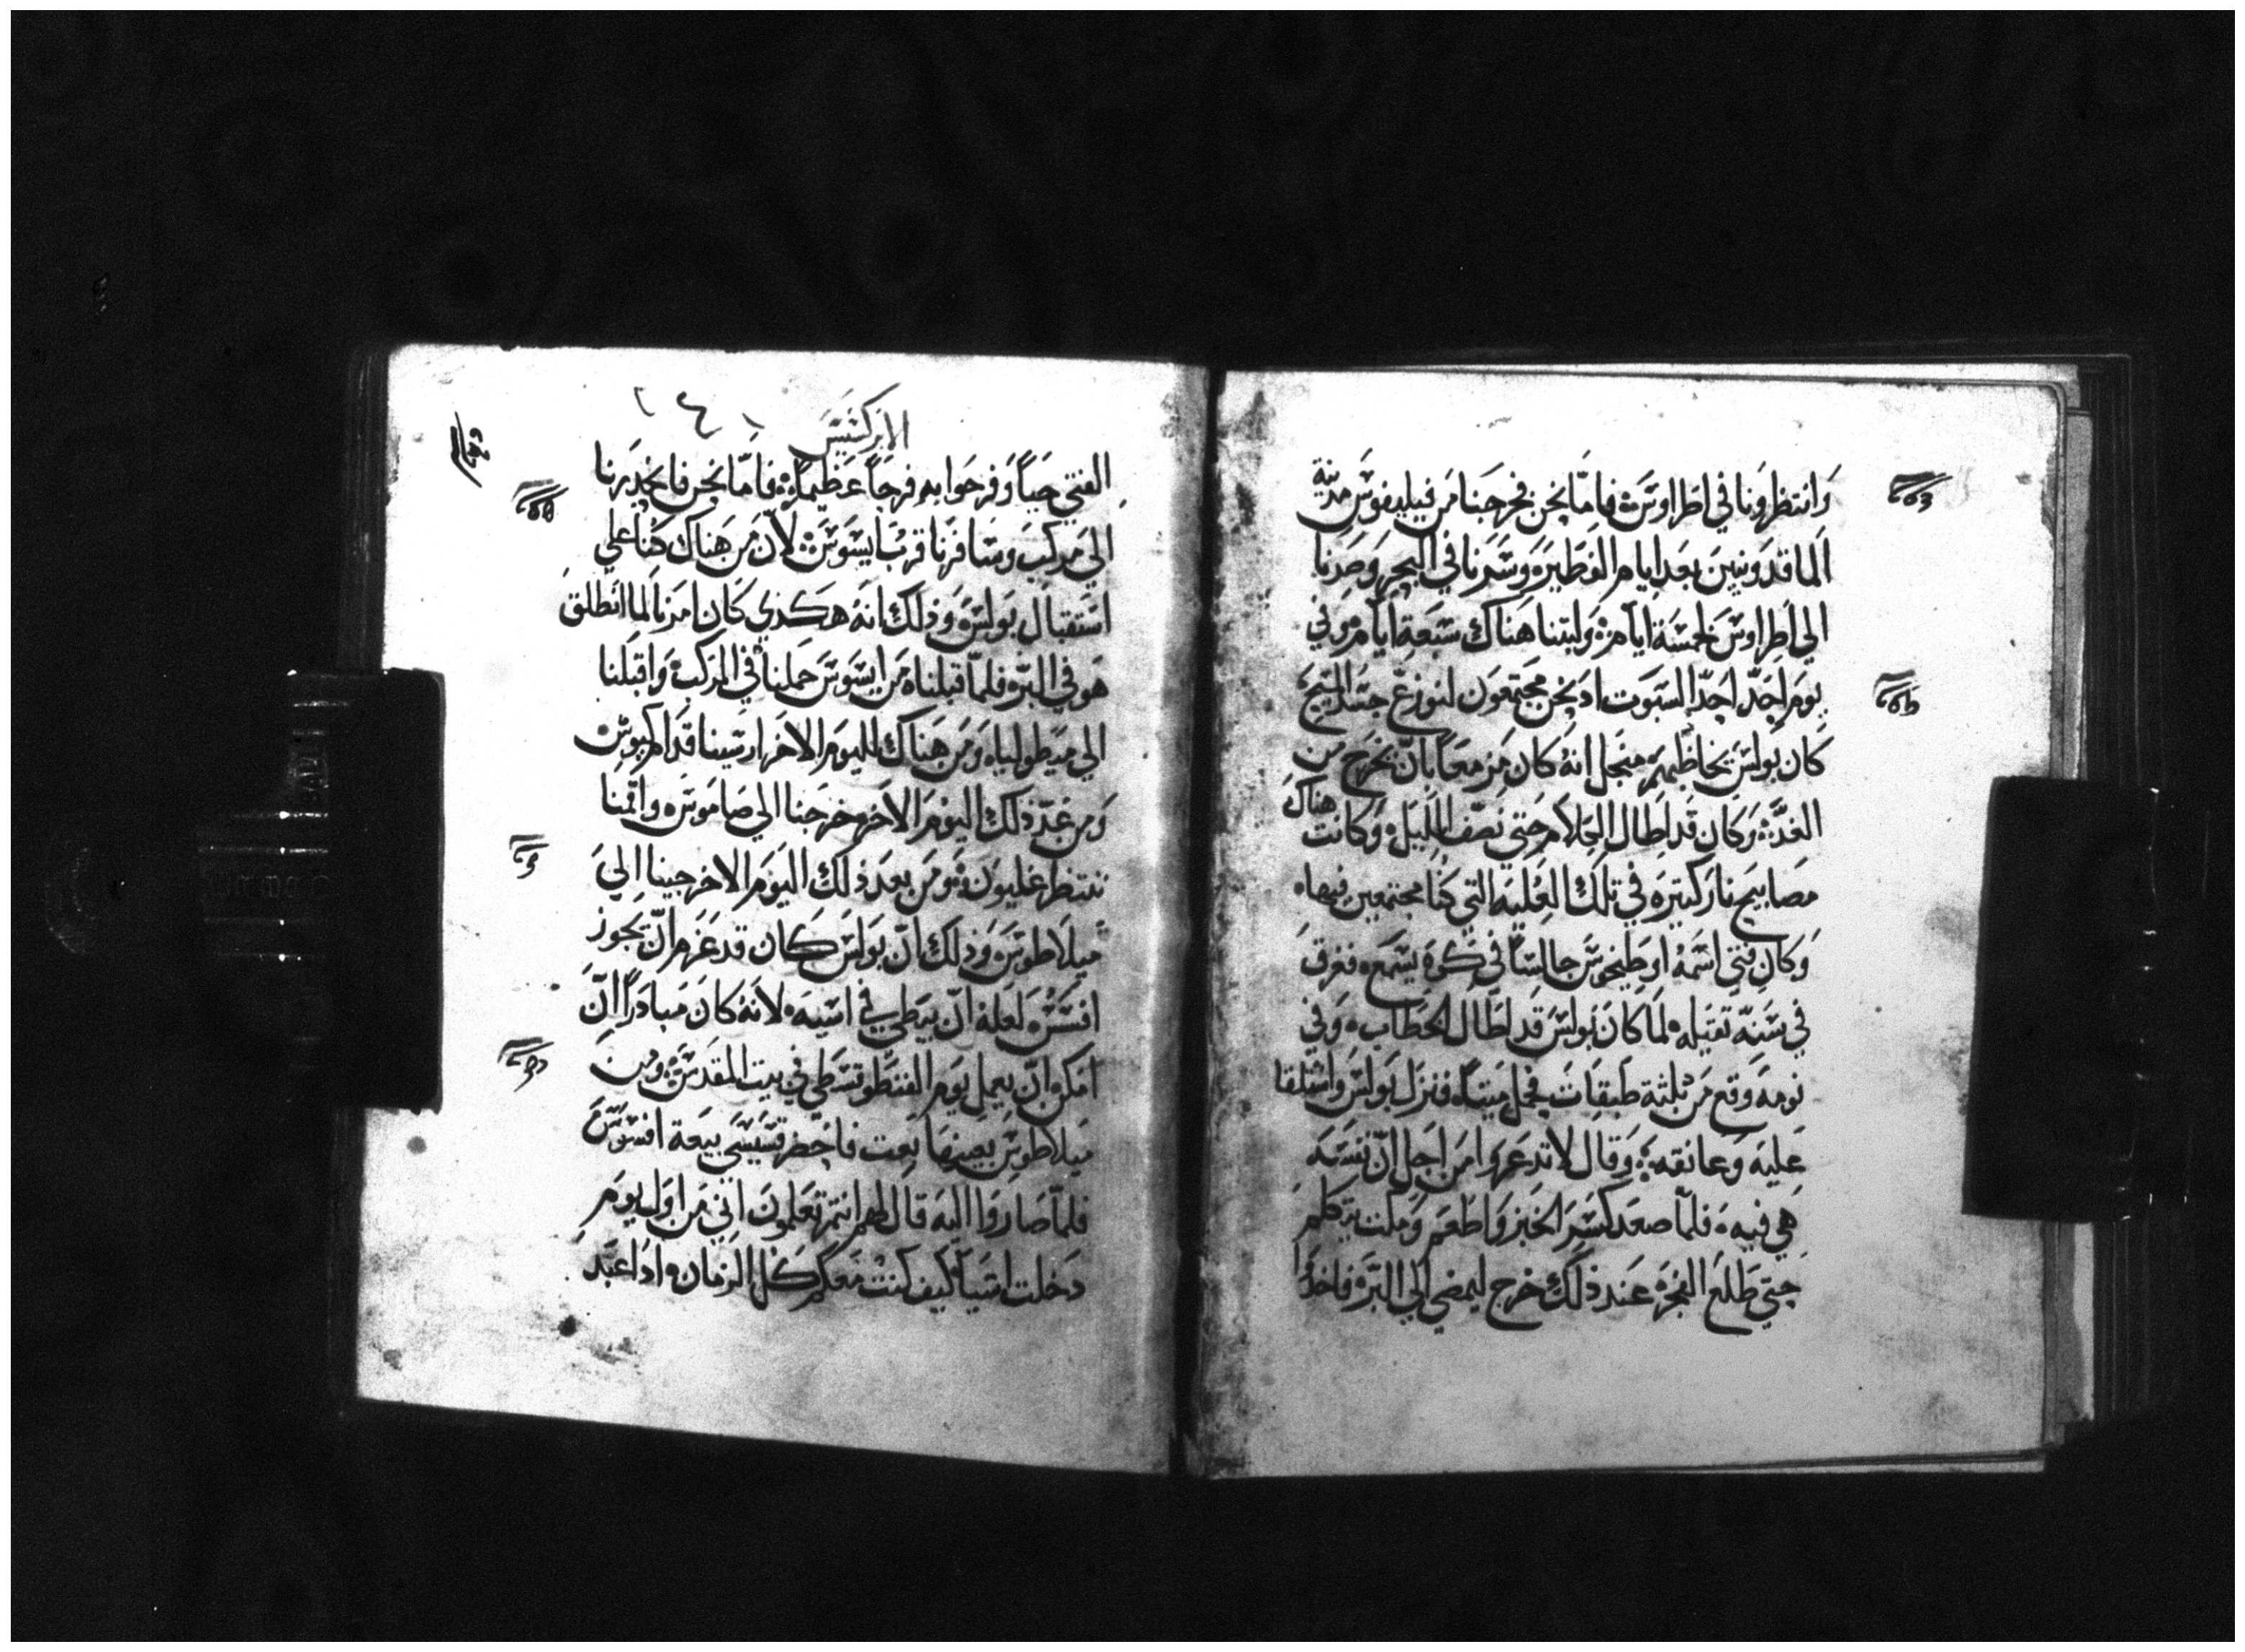 وَانتظرونا في اطراوسَ ۞ فامّا نحن فخرجنا من فيليفوسَ مدينة
الماقدونيين بعد ايام الفطير ۞ وسَرنا في البحر وَصرنا
الي اطراوسَ خلمسَة ايام ۞ ولبتنا هناك سَبعة ايام ۞ وفي
يوم احد احد السَبوت اد نحن مجتمعون لنوزع جسَد المسيح
كان بولسَ يخاطبهم منجل انه كان مزمعاً بان يخرج من
الغد ۞ وكان قد اطال الكلام حتي نصف الليل ۞ وكانت هناك
مصابيح نار كتيره في تلك العليه التي كنا مجتمعين فيها ۞
وكان فتي اسَمه اوطيخوسَ جالسَاً في كوة يسَمع ۞ فغرق
في سَنة تقيله ۞ لما كان بولسَ قد اطال الخطاب ۞ وفي
نومه وقع من ثلثة طبقات فحمل ميتاً ۞ فنزل بولسَ واسَتلقا
عليه وعانقه ۞ وقال لا تدعروا من اجل انّ نفسَه
هي فيه ۞ فلما صعد كسَر الخبز واطعم ومكت يتكلم
حتي طلع الفجر ۞ عند ذلك خرج ليمضي الي البر ۞ فاخدوا
الابركسَيسَ
الفتي حياً وَفرحوا به فرحاً عظيماً ۞ فامّا نحن فانحدرنا
الي مركب وسَافرنا قرب ايسَوسَ ۞ لانّ من هناك كنا علي
اسَتقبال بولسَ ۞ وذلك انه هكدي كان امرنا لما انطلق
هو في البر ۞ فلما قبلناه من ايسَوسَ حملناه في المركب ۞ واقبلنا
الي ميطولياه ومن هناك لليوم الاخر ارسَينا قدام كيوسَ
ومن غد ذلك اليوم الاخر خرجنا الي صاموسَ ۞ واقمنا
ننتظر غليون ۞ ومن بعد ذلك اليوم الاخر جينا الي
ميلاطوسَ ۞ وذلك انّ بولسَ كان قد عزم انّ يجوز
افسَسَ ۞ لعله انّ يبطي في اسَيه ۞ لانه كان مبادراً انّ
امكن انّ يعمل يوم الفنطوقسَطي في بيت المقدسَ ۞ ومن
ميلاطوسَ بعينها بعت فاحضر قسَيسَي بيعة افسَوسَ
فلما صاروا اليه قال لهم انتم تعلمون انني من اول يوم
دخلت اسَيا كيف كنت معكم كل الزمان ۞ اد اعبد